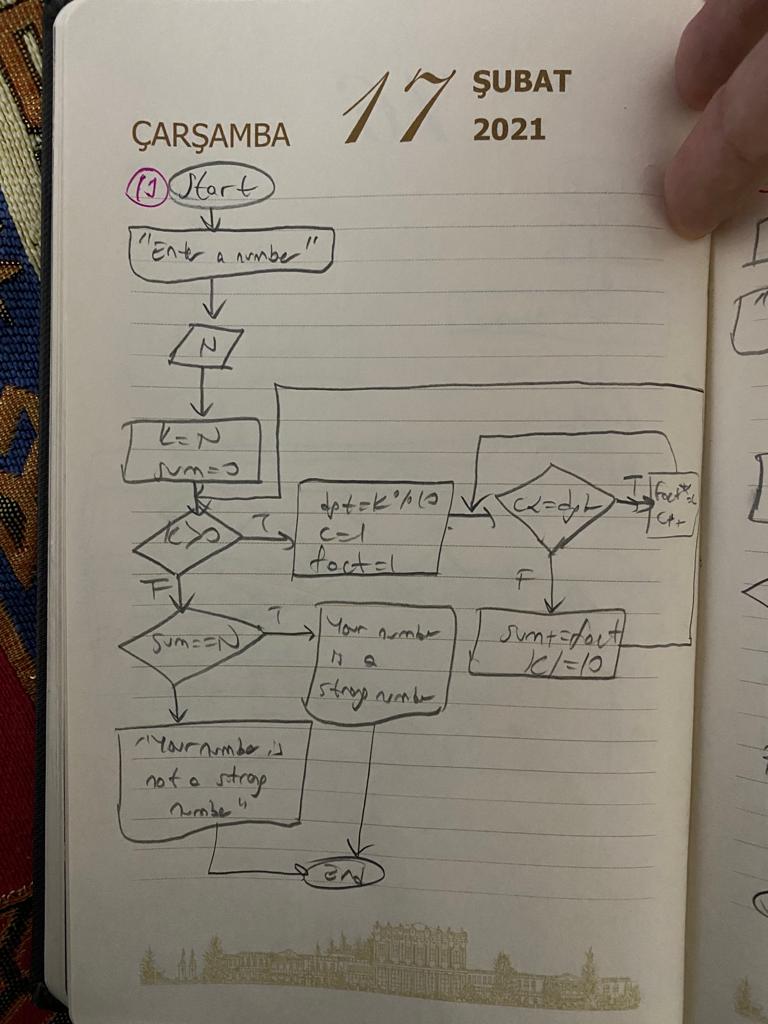 ÇARŞAMBA
17
ŞUBAT
2021
Start
"Enter a number"
N
K=N
sum=0
K>0
T
F
dgt=K%10
c=1
fact=1
c<=dgt
T
F
fact*=c
c++
sum+=fact
K/=10
sum==N
T
Your number
is a
strong number
"Your number is
not a strong
number"
End